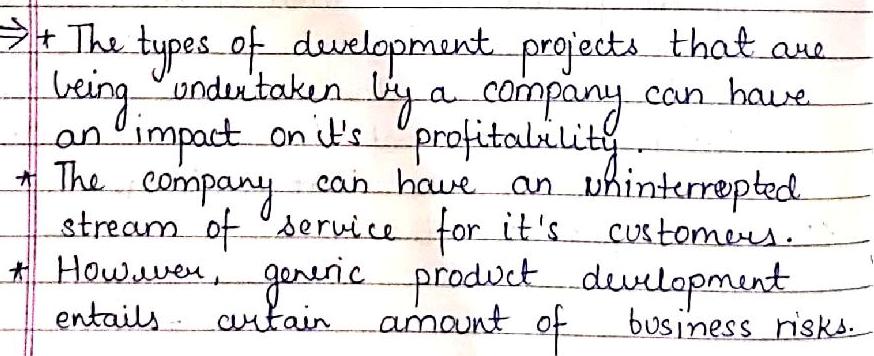 ⇒ * The types of development projects that are
being undertaken by a company can have
an impact on it's profitability.
* The company can have an uninterrepted
stream of service for it's customers.
* However, generic product development
entails certain amount of business risks.